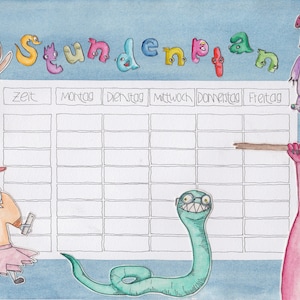 Stundenplan
Zeit Montag Dienstag Mittwoch Donnerstag Freitag